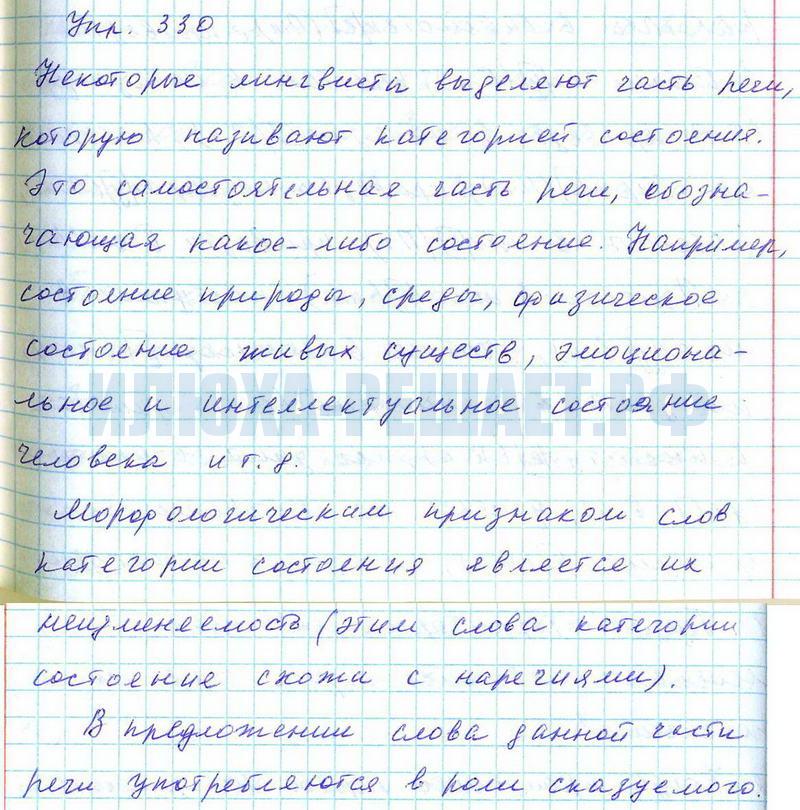 Упр. 330
Некоторые лингвисты выделяют часть речи,
которую называют категорией состояния.
Это самостоятельная часть речи, обозна-
чающая какое-либо состояние. Например,
состояние природы, среды, физическое
состояние живых существ, эмоциона-
ИЛЮХА-РЕШАЕТ.РФ
льное и интеллектуальное состояние
человека и т. д.
Морфологическим признаком слов
категории состояния является их
неизменяемость (этим слова категории
состояние схожи с наречиями).
В предложении слова данной части
речи употребляются в роли сказуемого.